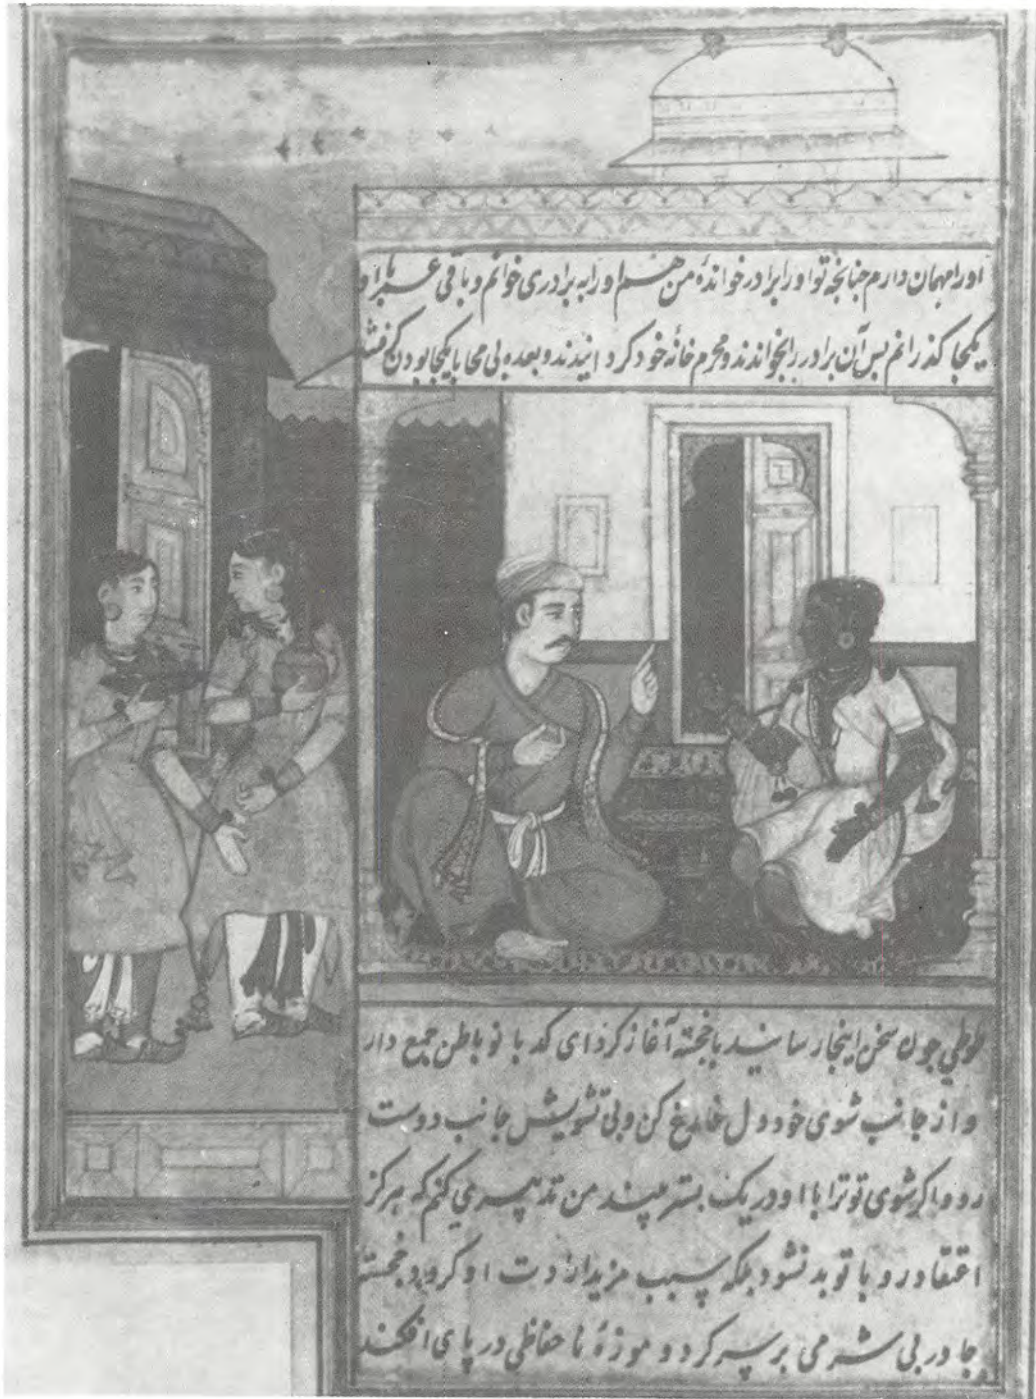 اورا مهمان دارم جنانچه تو اورا برادر خواندهٔ من هم اورا به برادری خوانم و باقی عمر با او
یکجا کذرانم بس آن برادر را بخواندند و محرم خانهٔ خود کردانیدند و بعده بی محابا یکجا بودن
طوطی جون سخن اینجا رسانید با خجسته آغاز کرد ای کدبانو باطن جمع دار
و از جانب شوی خود دل فارغ کن و بی تشویش جانب دوست
رو و اکر شوی تو ترا با او در یک بستر بیند من تدبیر می کنم که هرکز
اعتقاد او با تو بد نشود بلکه سبب مزید ارادت او کردد خجسته
جادر بی شرمی بر سر کرد و موزهٔ نا حفاظی در پای افکند